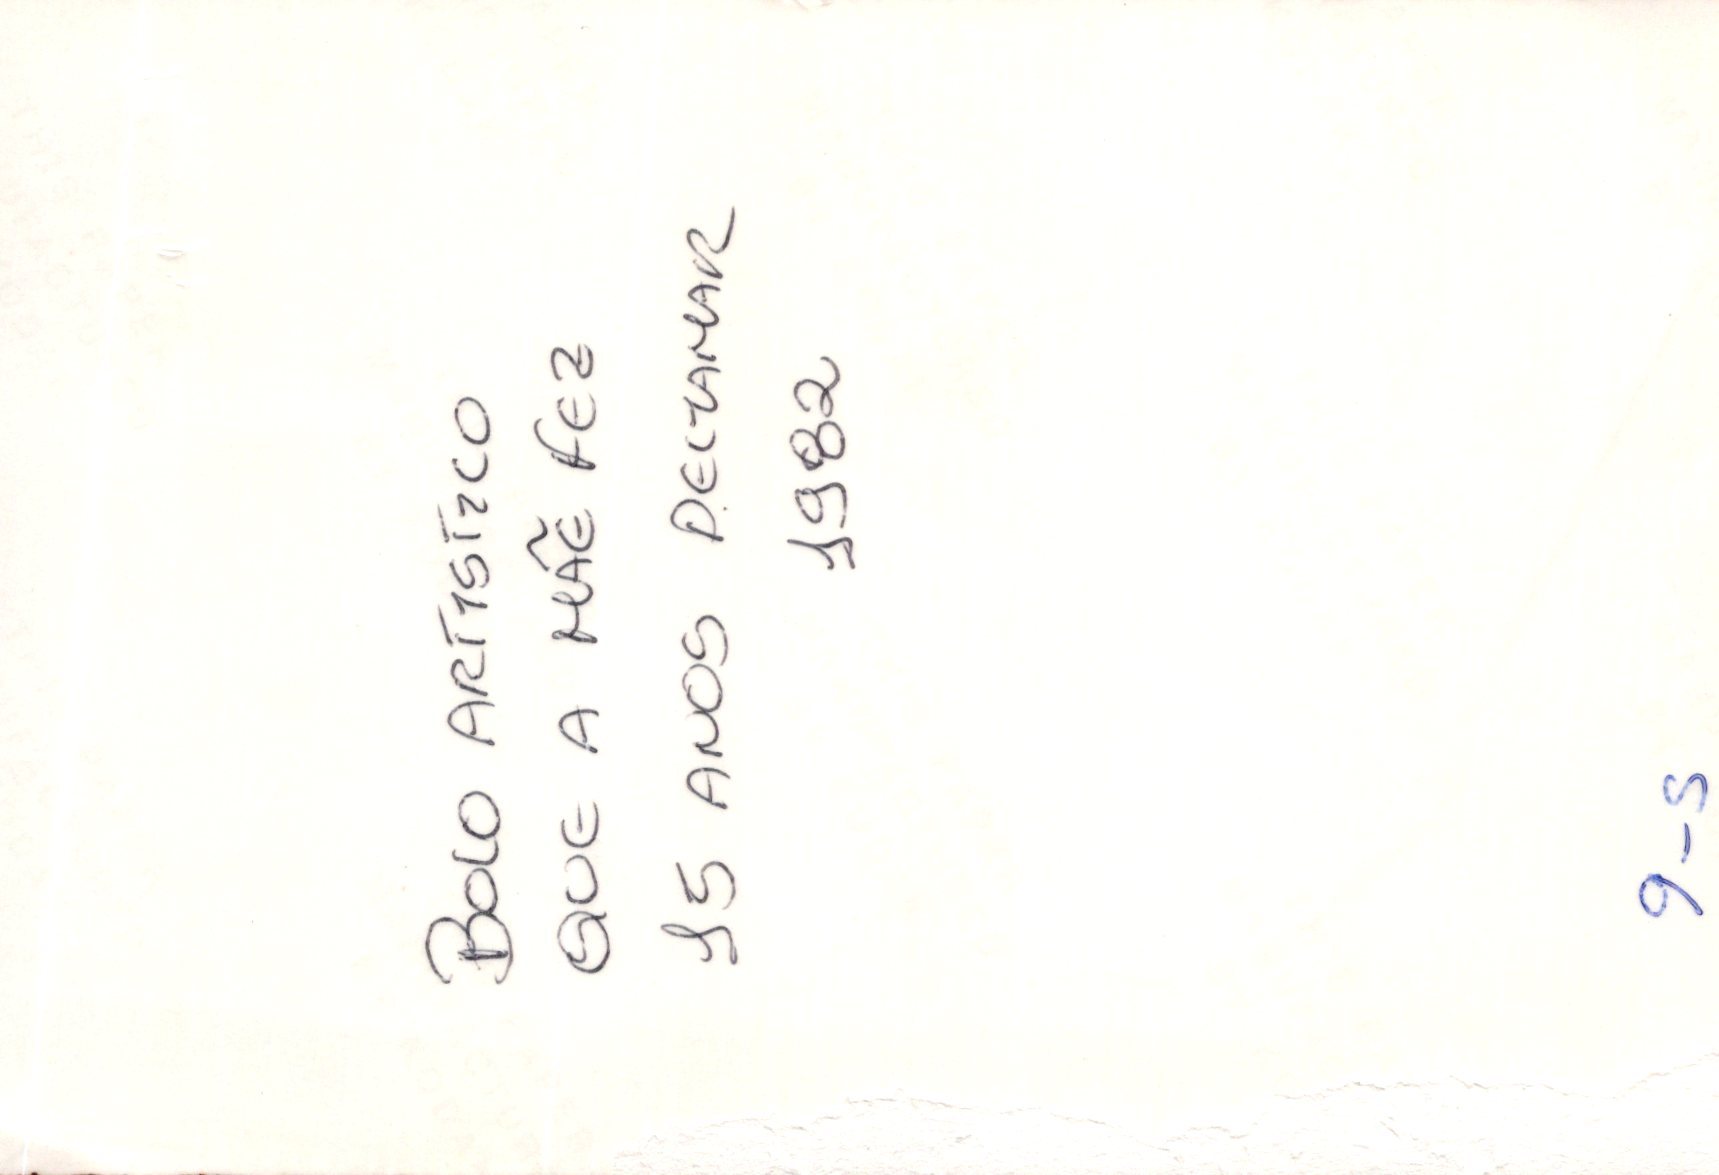 BOLO ARTÍSTICO
QUE A MÃE FEZ
15 ANOS DELYAMAR
1982
9-5